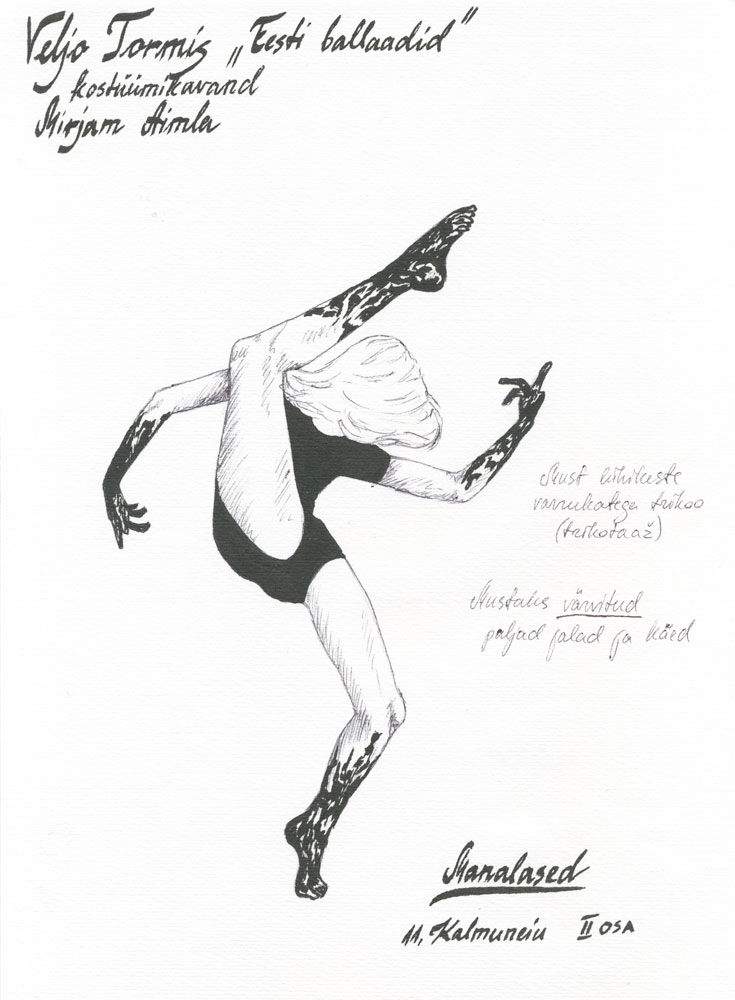 Veljo Tormis „Eesti ballaadid"
kostüümikavand
Mirjam Aimla
Must lühikeste
varrukatega trikoo
(trikotaaž)
Mustaks värvitud
paljad jalad ja käed
Manalased
11. Kalmuneiu II OSA